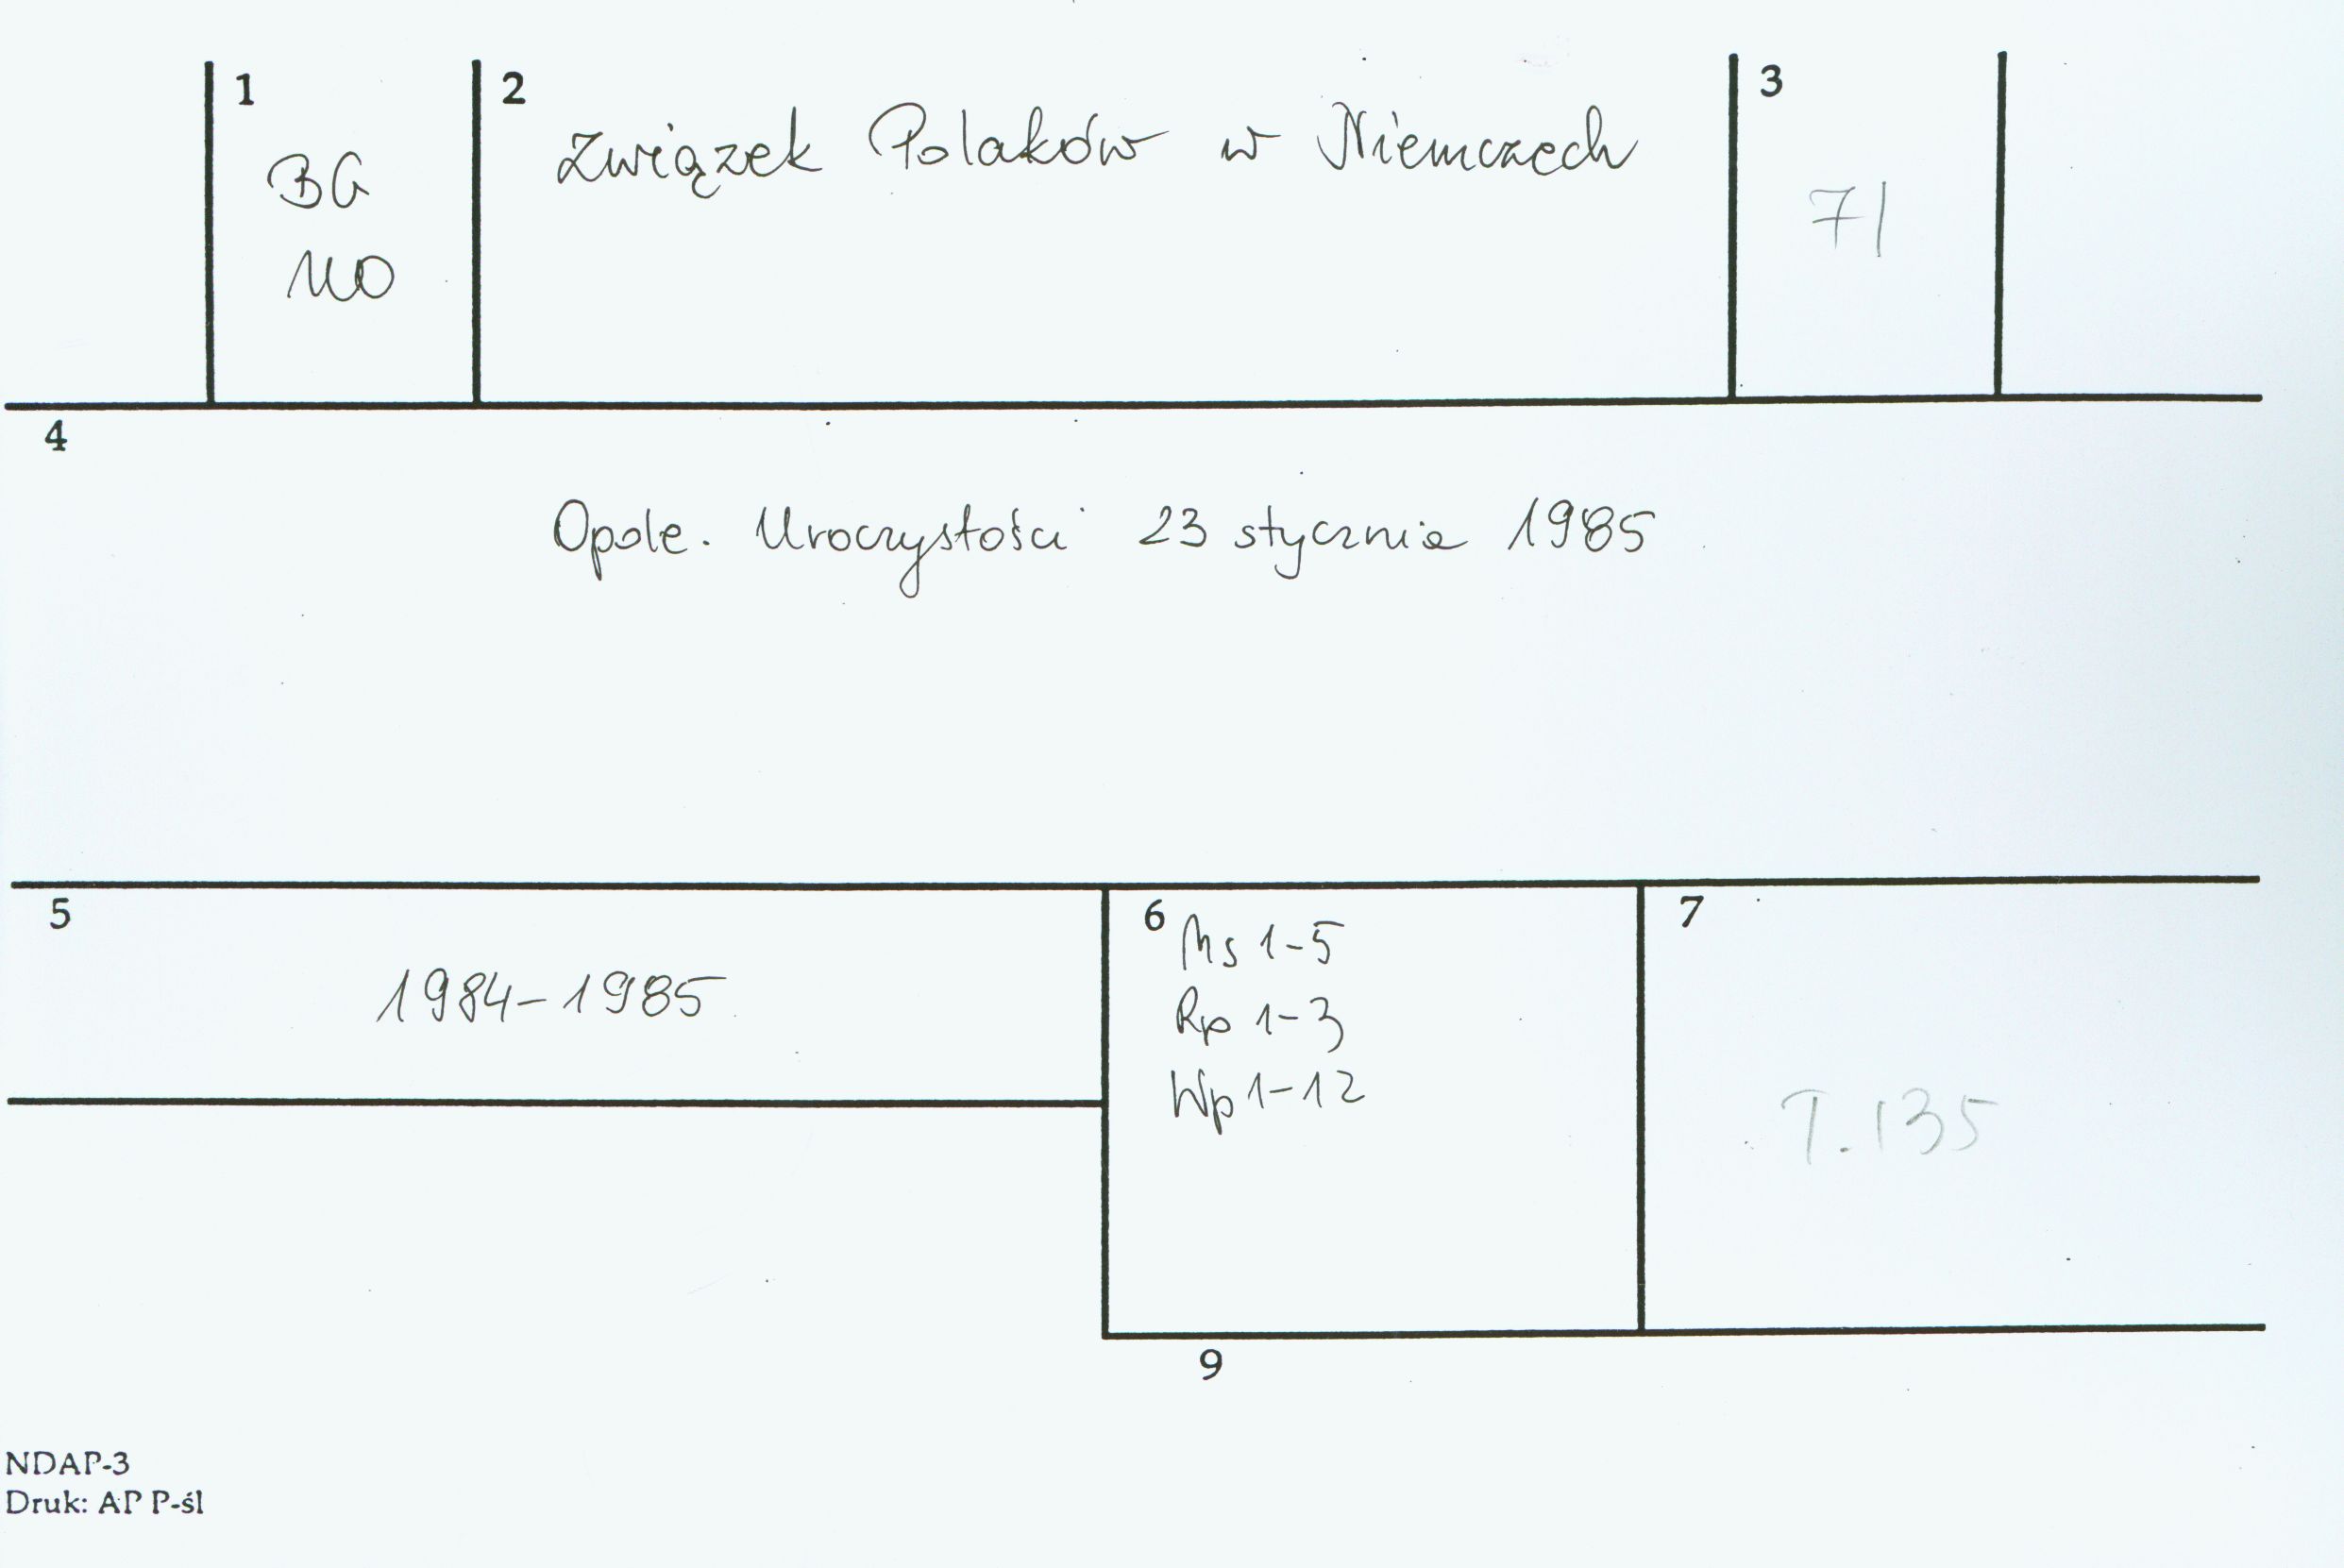 1
BG
110
2
Związek Polaków w Niemczech
3
71
4
Opole. Uroczystości 23 stycznia 1985
5
1984-1985
6
Ms 1-5
Rp 1-3
Wp 1-12
7
T. 135
9
NDAP-3
Druk: AP P-śl